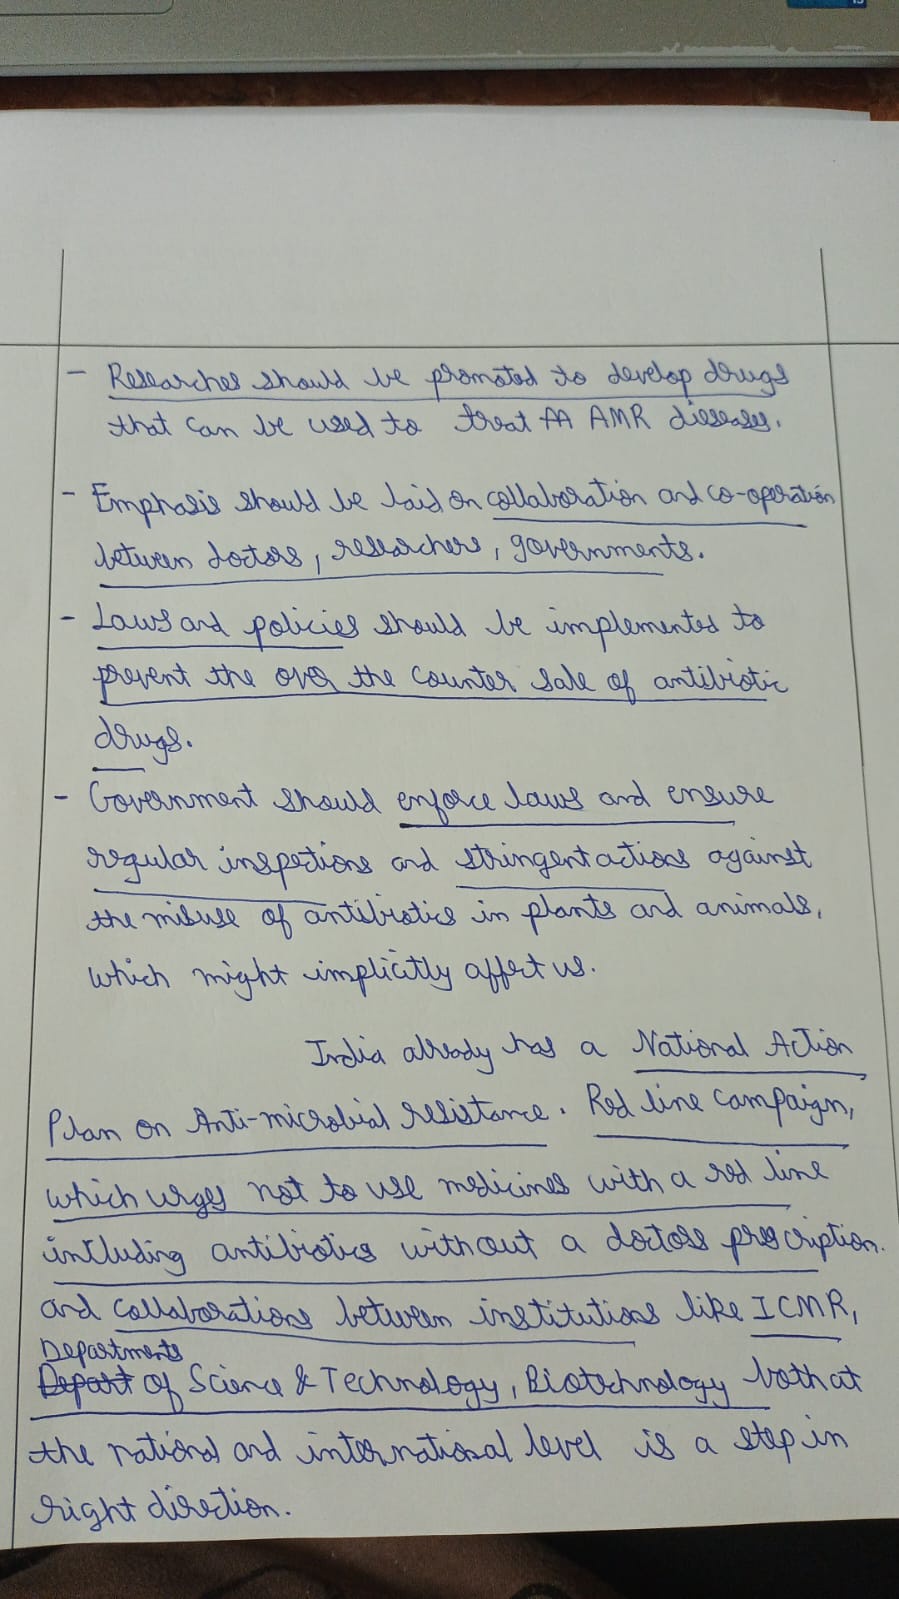 - Researches should be promoted to develop drugs
that can be used to treat AMR diseases.
- Emphasis should be laid on collaboration and co-operation
between doctors, researchers, governments.
- Laws and policies should be implemented to
prevent the over the counter sale of antibiotic
drugs.
- Government should enforce laws and ensure
regular inspections and stringent actions against
the misuse of antibiotics in plants and animals,
which might implicitly affect us.
India already has a National Action
Plan on Anti-microbial resistance. Red line campaign,
which urges not to use medicines with a red line
including antibiotics without a doctors prescription.
and collaborations between institutions like ICMR,
Departments
Depart of Science & Technology, Biotechnology both at
the national and international level is a step in
right direction.